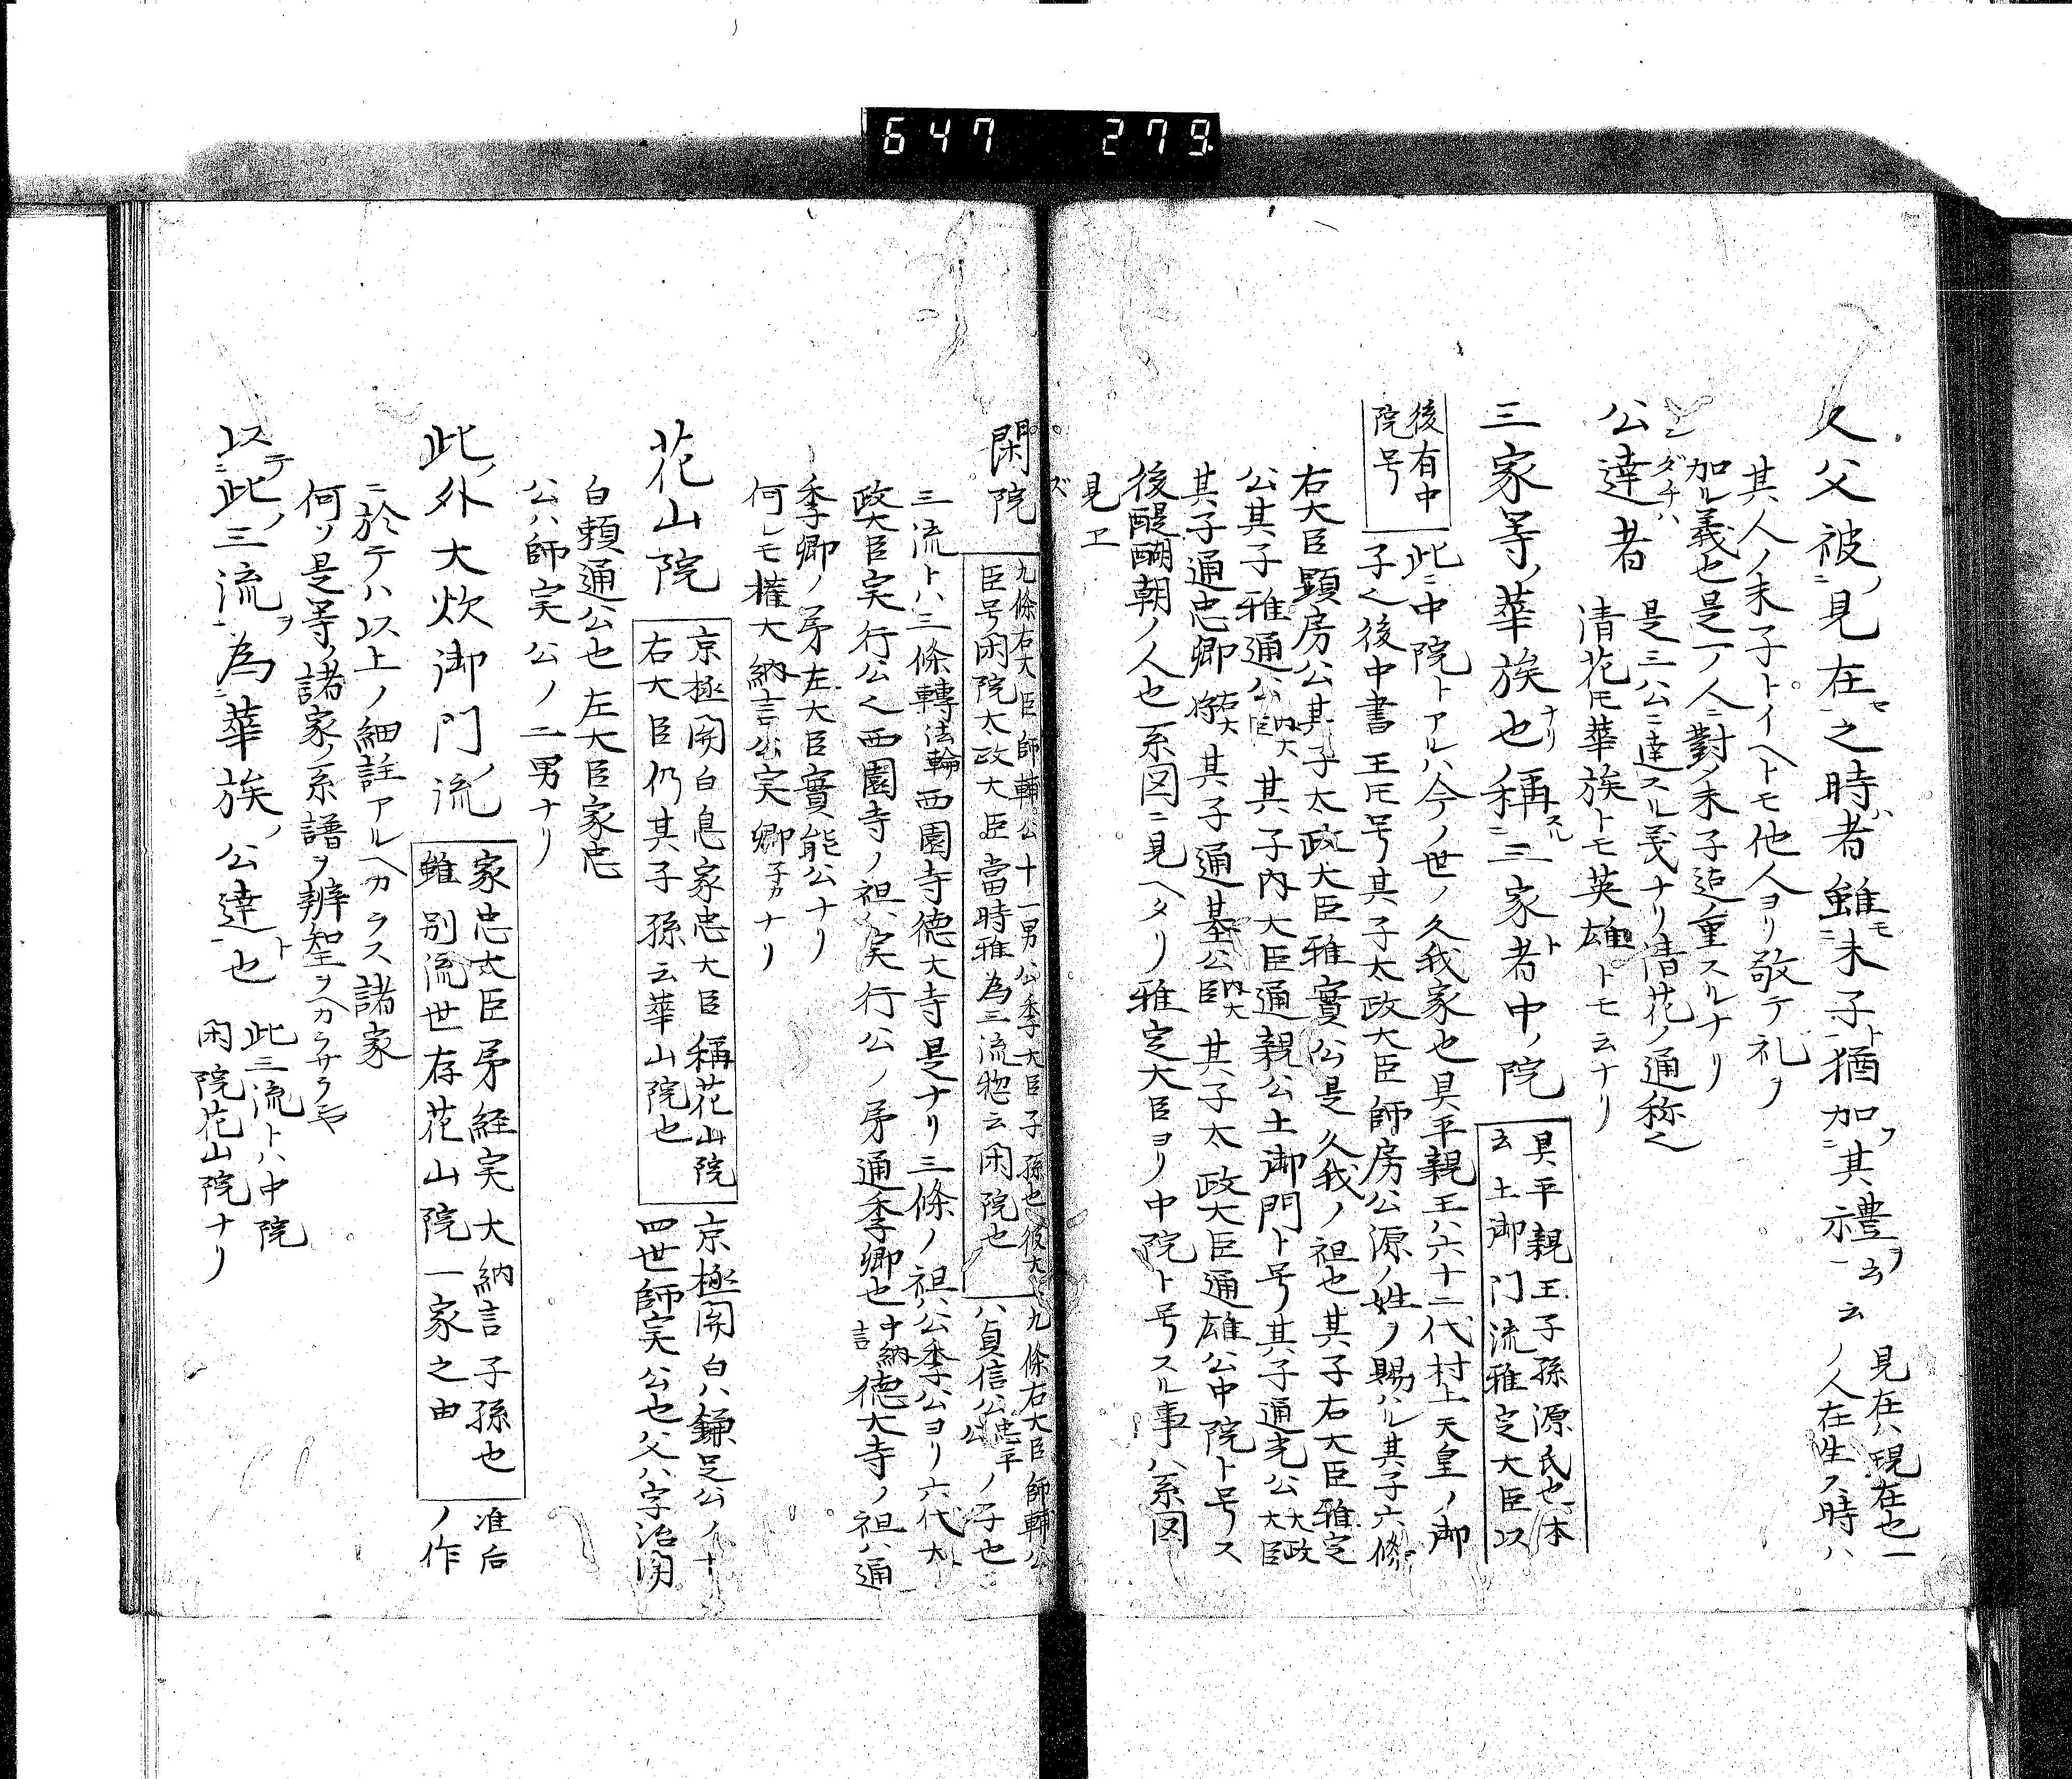 647 279
又父被ノニ見在セ一之時者ハ雖モニ末子ト猶加フニ其禮ヲ一云云 見在ハ現在也一
ノ人在生ス時ハ
其人ノ末子トイヘトモ他人ヨリ敬テ礼ヲ
加ル義也是一ノ人ニ對ノ末子迠ノ重スルナリ
公達者ダチハ 是三公ニ達スル義ナリ清花ノ通称也
清花モ華族トモ英雄トモ云ナリ
三家等ノ華族也ナリ稱スルニ三家ト者中ノ院
具平親王子孫源氏也本
云土御门流雅定大臣以
後有中
院号
此ニ中院トアルハ今ノ世ノ久我家也具平親王ハ六十二代村上天皇ノ御
子也後中書王ト号其子太政大臣師房公源ノ姓ヲ賜ハル其子六條
右大臣顕房公其子太政大臣雅實公是久我ノ祖也其子右大臣雅定
公其子雅通公内大臣其子内大臣通親公土御門ト号其子通光公太政大臣
其子通忠卿右大将其子通基公内大臣其子太政大臣通雄公中院ト号ス
後醍醐朝ノ人也系図ニ見ヘタリ雅定大臣ヨリ中院ト号スル事ハ系図
見エ
ズ
閑院
九條右大臣師輔公十一男公季大臣子孫也彼大
臣号閑院太政大臣當時雅為三流惣云閑院也
九條右大臣師輔公
ハ貞信公忠平公ノ子也
三流トハ三條轉法輪西園寺德大寺是ナリ三條ノ祖ハ公季公ヨリ六代太
政大臣実行公也西園寺ノ祖ハ実行公ノ弟通季卿也中納言德大寺ノ祖ハ通
季卿ノ弟左大臣實能公ナリ
何レモ權大納言公実卿子カナリ
花山院
京極関白息家忠大臣稱花山院
右大臣仍其子孫云華山院也
京極関白ハ鎌足公ノ十
四世師実公也父ハ宇治関
白頼通公也左大臣家忠
公ハ師実公ノ二男ナリ
此ノ外大炊御門ノ流
家忠大臣弟経実大納言子孫也
雖別流世存花山院一家之由
准后
ノ作
ニ於テハ以上ノ細註アルヘカラス諸家
何ソ是等ノ諸家ノ系譜ヲ辨ヘ智ヲヘカラサラ
以テニ此ノ三流ヲ一為ニ華族ノ公達ト一也 此三流トハ中院
閑院花山院ナリ